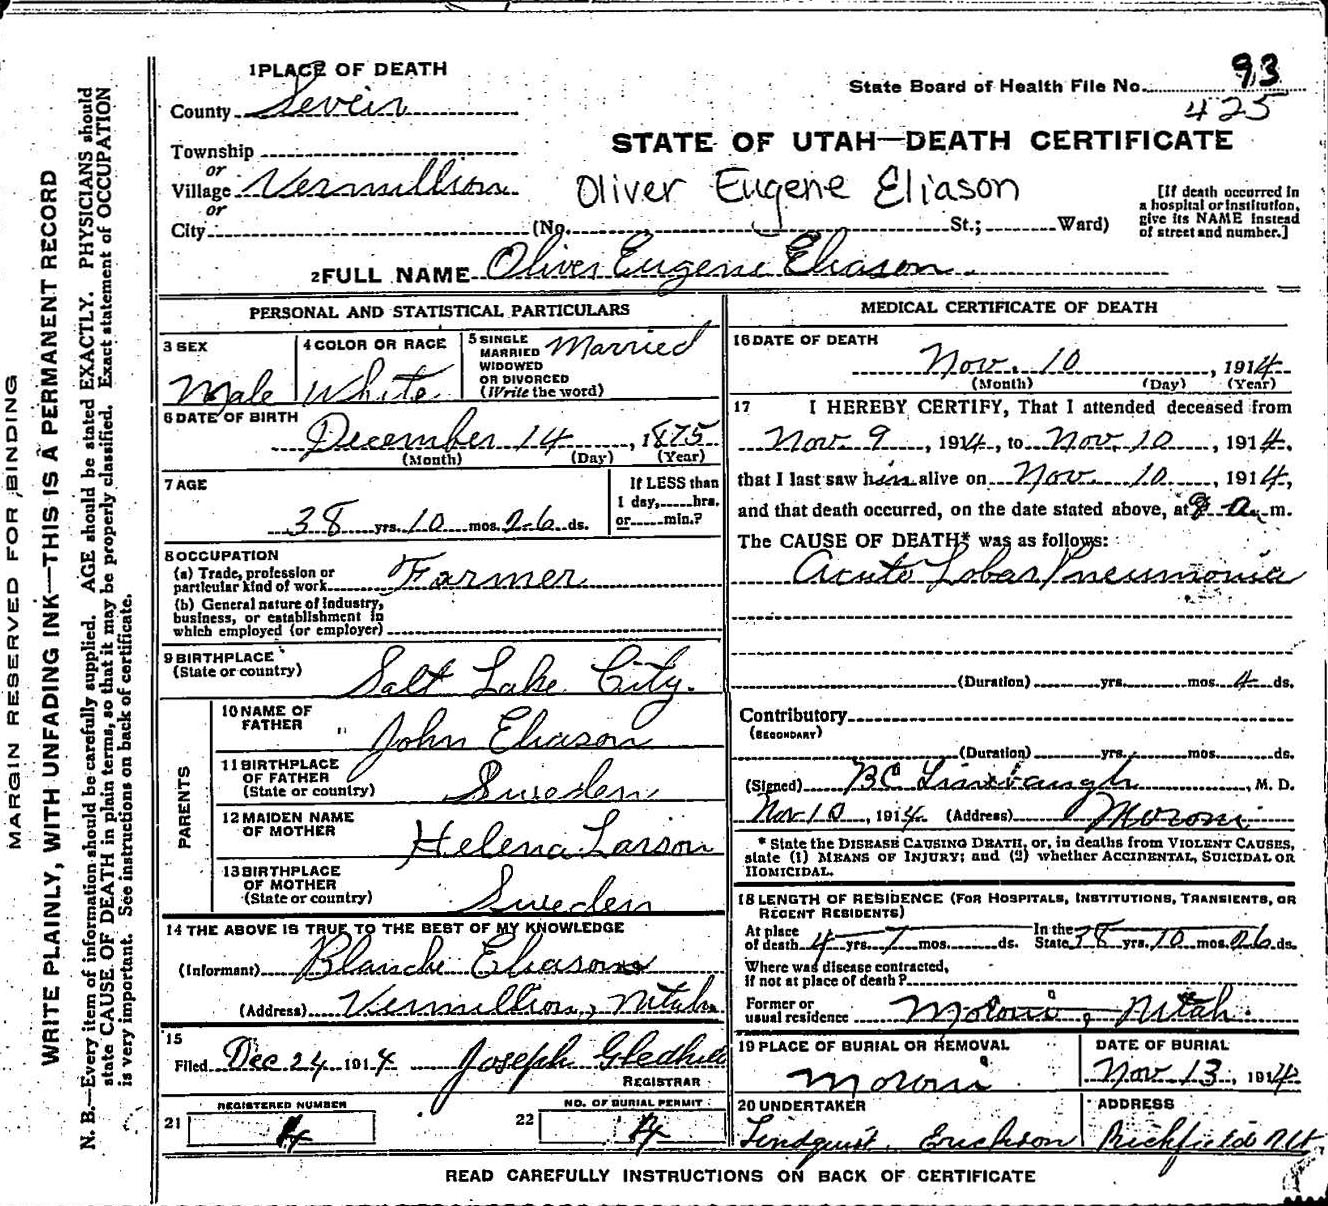 MARGIN RESERVED FOR BINDING
WRITE PLAINLY, WITH UNFADING INK—THIS IS A PERMANENT RECORD
N. B.—Every item of information should be carefully supplied. AGE should be stated EXACTLY. PHYSICIANS should
state CAUSE OF DEATH in plain terms, so that it may be properly classified. Exact statement of OCCUPATION
is very important. See instructions on back of certificate.
1 PLACE OF DEATH
County Seveir
Township
or
Village Vermillion
or
City (No. St.; Ward)
State Board of Health File No. 93
425
STATE OF UTAH—DEATH CERTIFICATE
Oliver Eugene Eliason
[If death occurred in
a hospital or institution,
give its NAME instead
of street and number.]
2 FULL NAME Oliver Eugene Eliason
PERSONAL AND STATISTICAL PARTICULARS
3 SEX
Male
4 COLOR OR RACE
White
5 SINGLE
MARRIED
WIDOWED
OR DIVORCED
(Write the word)
Married
6 DATE OF BIRTH
December 14, 1875
(Month) (Day) (Year)
7 AGE
38 yrs. 10 mos. 26 ds.
If LESS than
1 day, hrs.
or min.?
8 OCCUPATION
(a) Trade, profession or
particular kind of work Farmer
(b) General nature of industry,
business, or establishment in
which employed (or employer)
9 BIRTHPLACE
(State or country) Salt Lake City.
PARENTS
10 NAME OF
FATHER John Eliason
11 BIRTHPLACE
OF FATHER
(State or country) Sweden
12 MAIDEN NAME
OF MOTHER Helena Larson
13 BIRTHPLACE
OF MOTHER
(State or country) Sweden
14 THE ABOVE IS TRUE TO THE BEST OF MY KNOWLEDGE
(Informant) Blanche Eliason
(Address) Vermillion, Utah
15
Filed Dec 24 1914 Joseph Gledhill
REGISTRAR
21 REGISTERED NUMBER
4
22 NO. OF BURIAL PERMIT
4
MEDICAL CERTIFICATE OF DEATH
16 DATE OF DEATH
Nov. 10, 1914
(Month) (Day) (Year)
17 I HEREBY CERTIFY, That I attended deceased from
Nov. 9, 1914, to Nov. 10, 1914,
that I last saw him alive on Nov. 10, 1914,
and that death occurred, on the date stated above, at 9 a m.
The CAUSE OF DEATH* was as follows:
Acute Lobar Pneumonia
(Duration) yrs. mos. 4 ds.
Contributory
(SECONDARY)
(Duration) yrs. mos. ds.
(Signed) BC Linebaugh, M. D.
Nov 10, 1914 (Address) Moroni
* State the DISEASE CAUSING DEATH, or, in deaths from VIOLENT CAUSES,
state (1) MEANS OF INJURY; and (2) whether ACCIDENTAL, SUICIDAL OR
HOMICIDAL.
18 LENGTH OF RESIDENCE (FOR HOSPITALS, INSTITUTIONS, TRANSIENTS, OR
RECENT RESIDENTS)
At place
of death 4 yrs. 7 mos. ds. In the
State 38 yrs. 10 mos. 26 ds.
Where was disease contracted,
if not at place of death?
Former or
usual residence Moroni, Utah.
19 PLACE OF BURIAL OR REMOVAL
Moroni
DATE OF BURIAL
Nov 13, 1914
20 UNDERTAKER
Lindquist Erickson
ADDRESS
Richfield Ut
READ CAREFULLY INSTRUCTIONS ON BACK OF CERTIFICATE